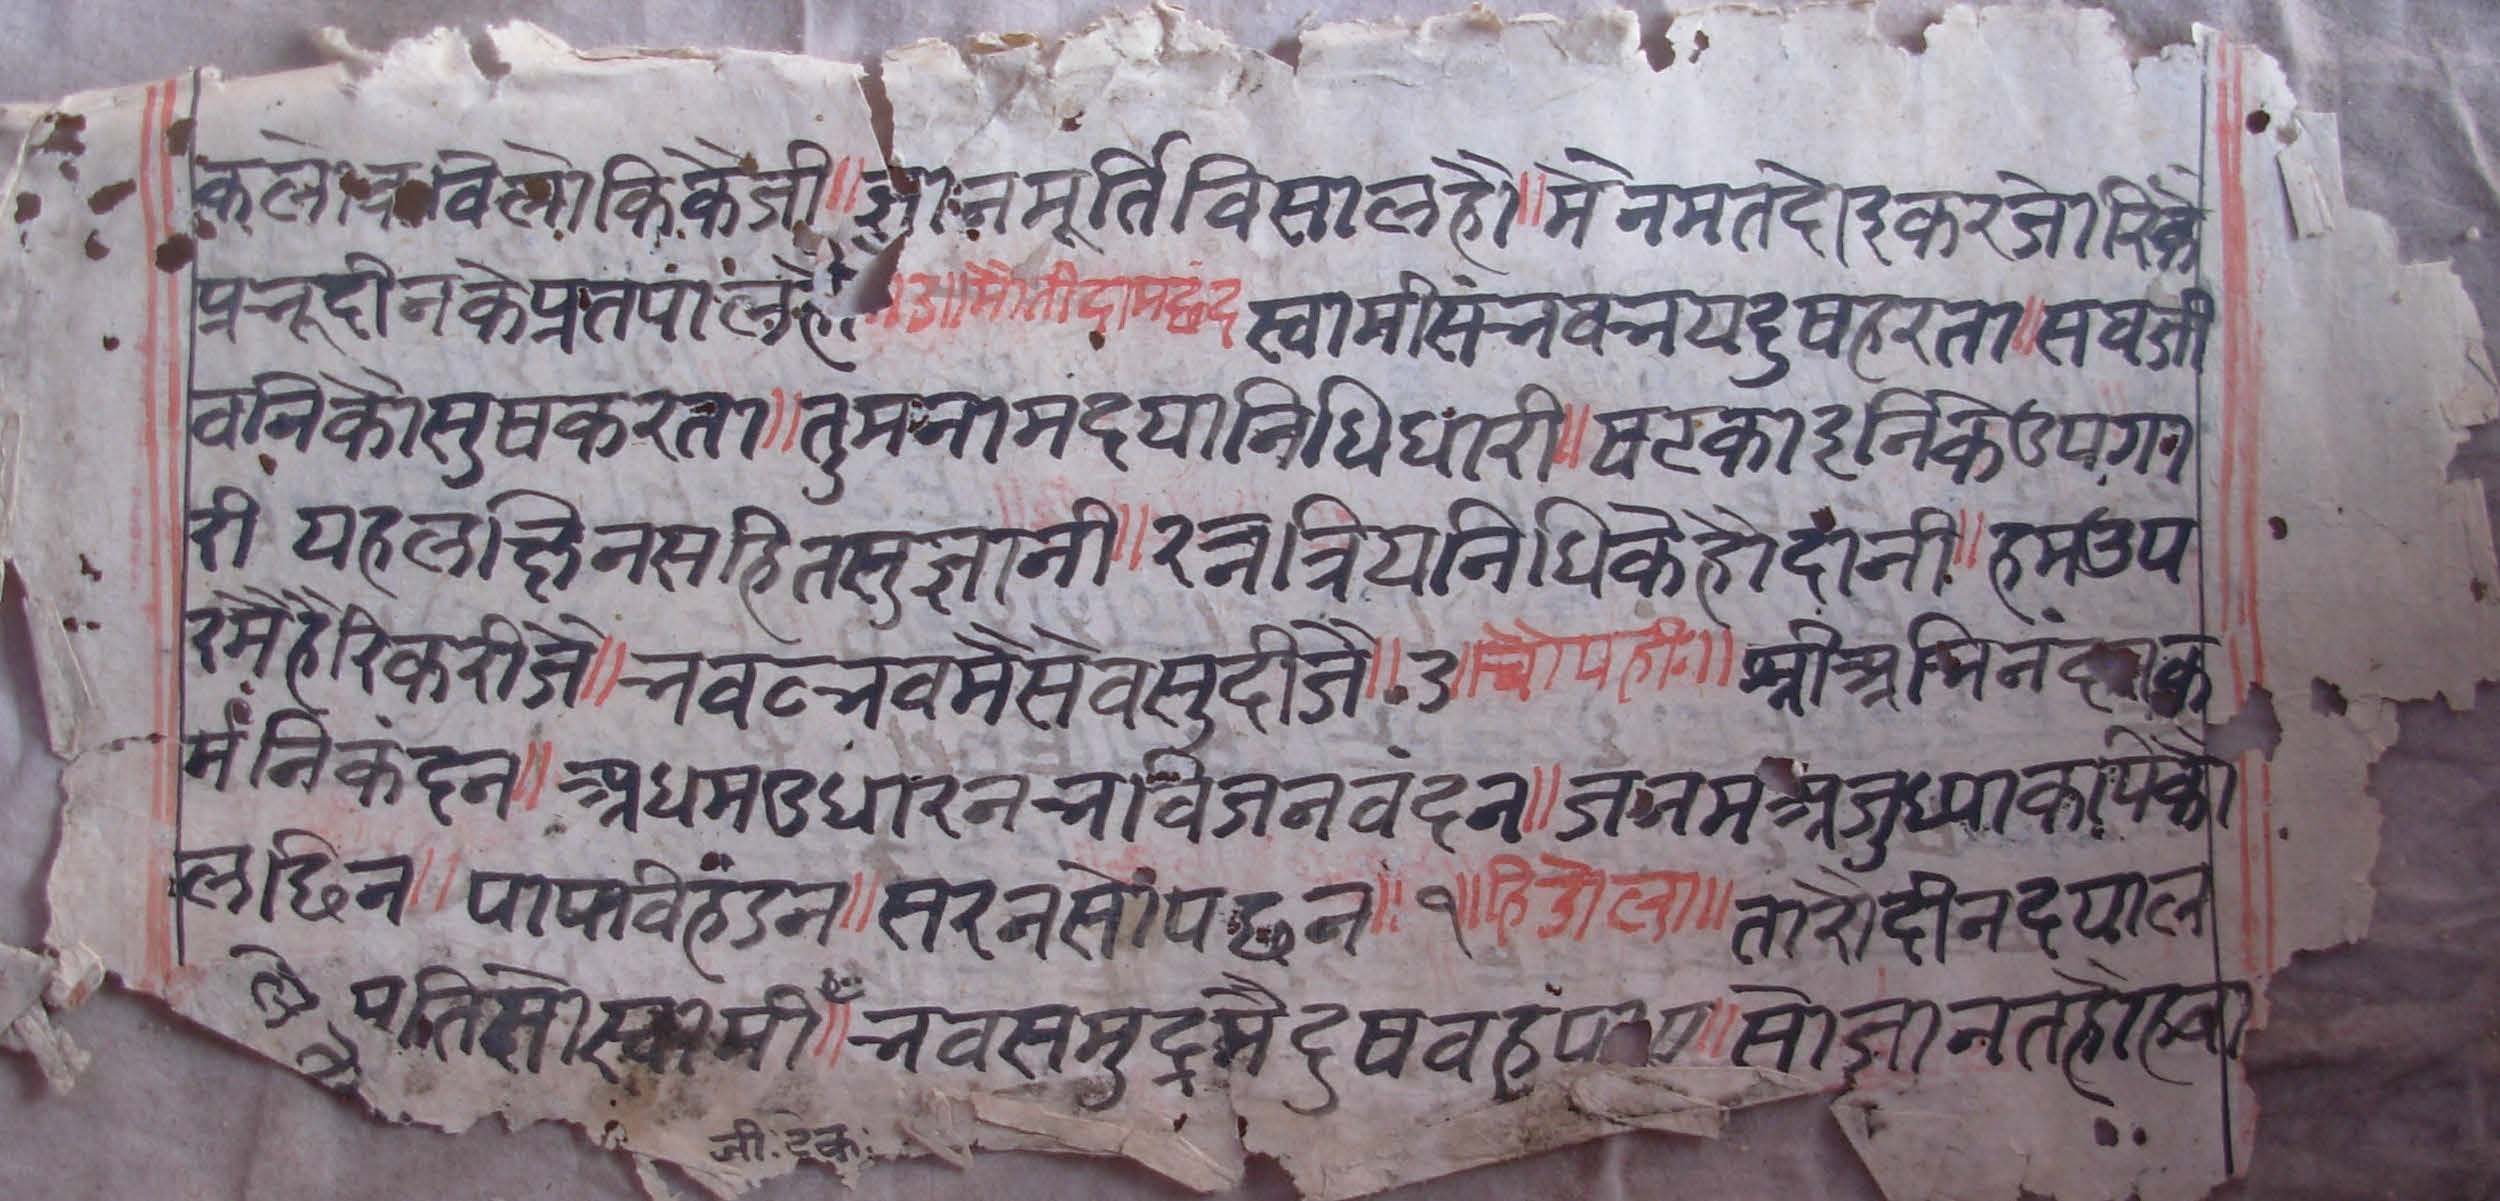 कलोक विलोकिकैजी॥ ज्ञानमूर्तिविसालहौ॥ मैनमतदोइकरजोरिकै
प्रभूदीनकेप्रतपालहौ ॥३॥ मोतीदामछंद स्वामीसंभवभयदुषहरता॥ सबजी
वनिकौसुषकरता॥ तुमनामदयानिधिधारी॥ षटकाइनिकेउपगा
री यहलछिनसहितसुज्ञानी॥ रत्नत्रियनिधिकेहौदांनी॥ हमउप
रमैहैरिकरीजे॥ भवटभवमैसेवसुदीजै॥ ३॥ श्रीअभिनंदनक
र्मनिकंदन॥ अधमउधारनभविजनवंदन॥ जनमअजुध्याकपिकौ
लछिन॥ पापविहंडन॥ सरनसौंपछन॥ १॥ हिडोला॥ तारौदीनदयाल
पतिसोस्वामी॥ भवसमुद्रमैदुषवहु ॥ सोजानतहौ
जी. टेक: